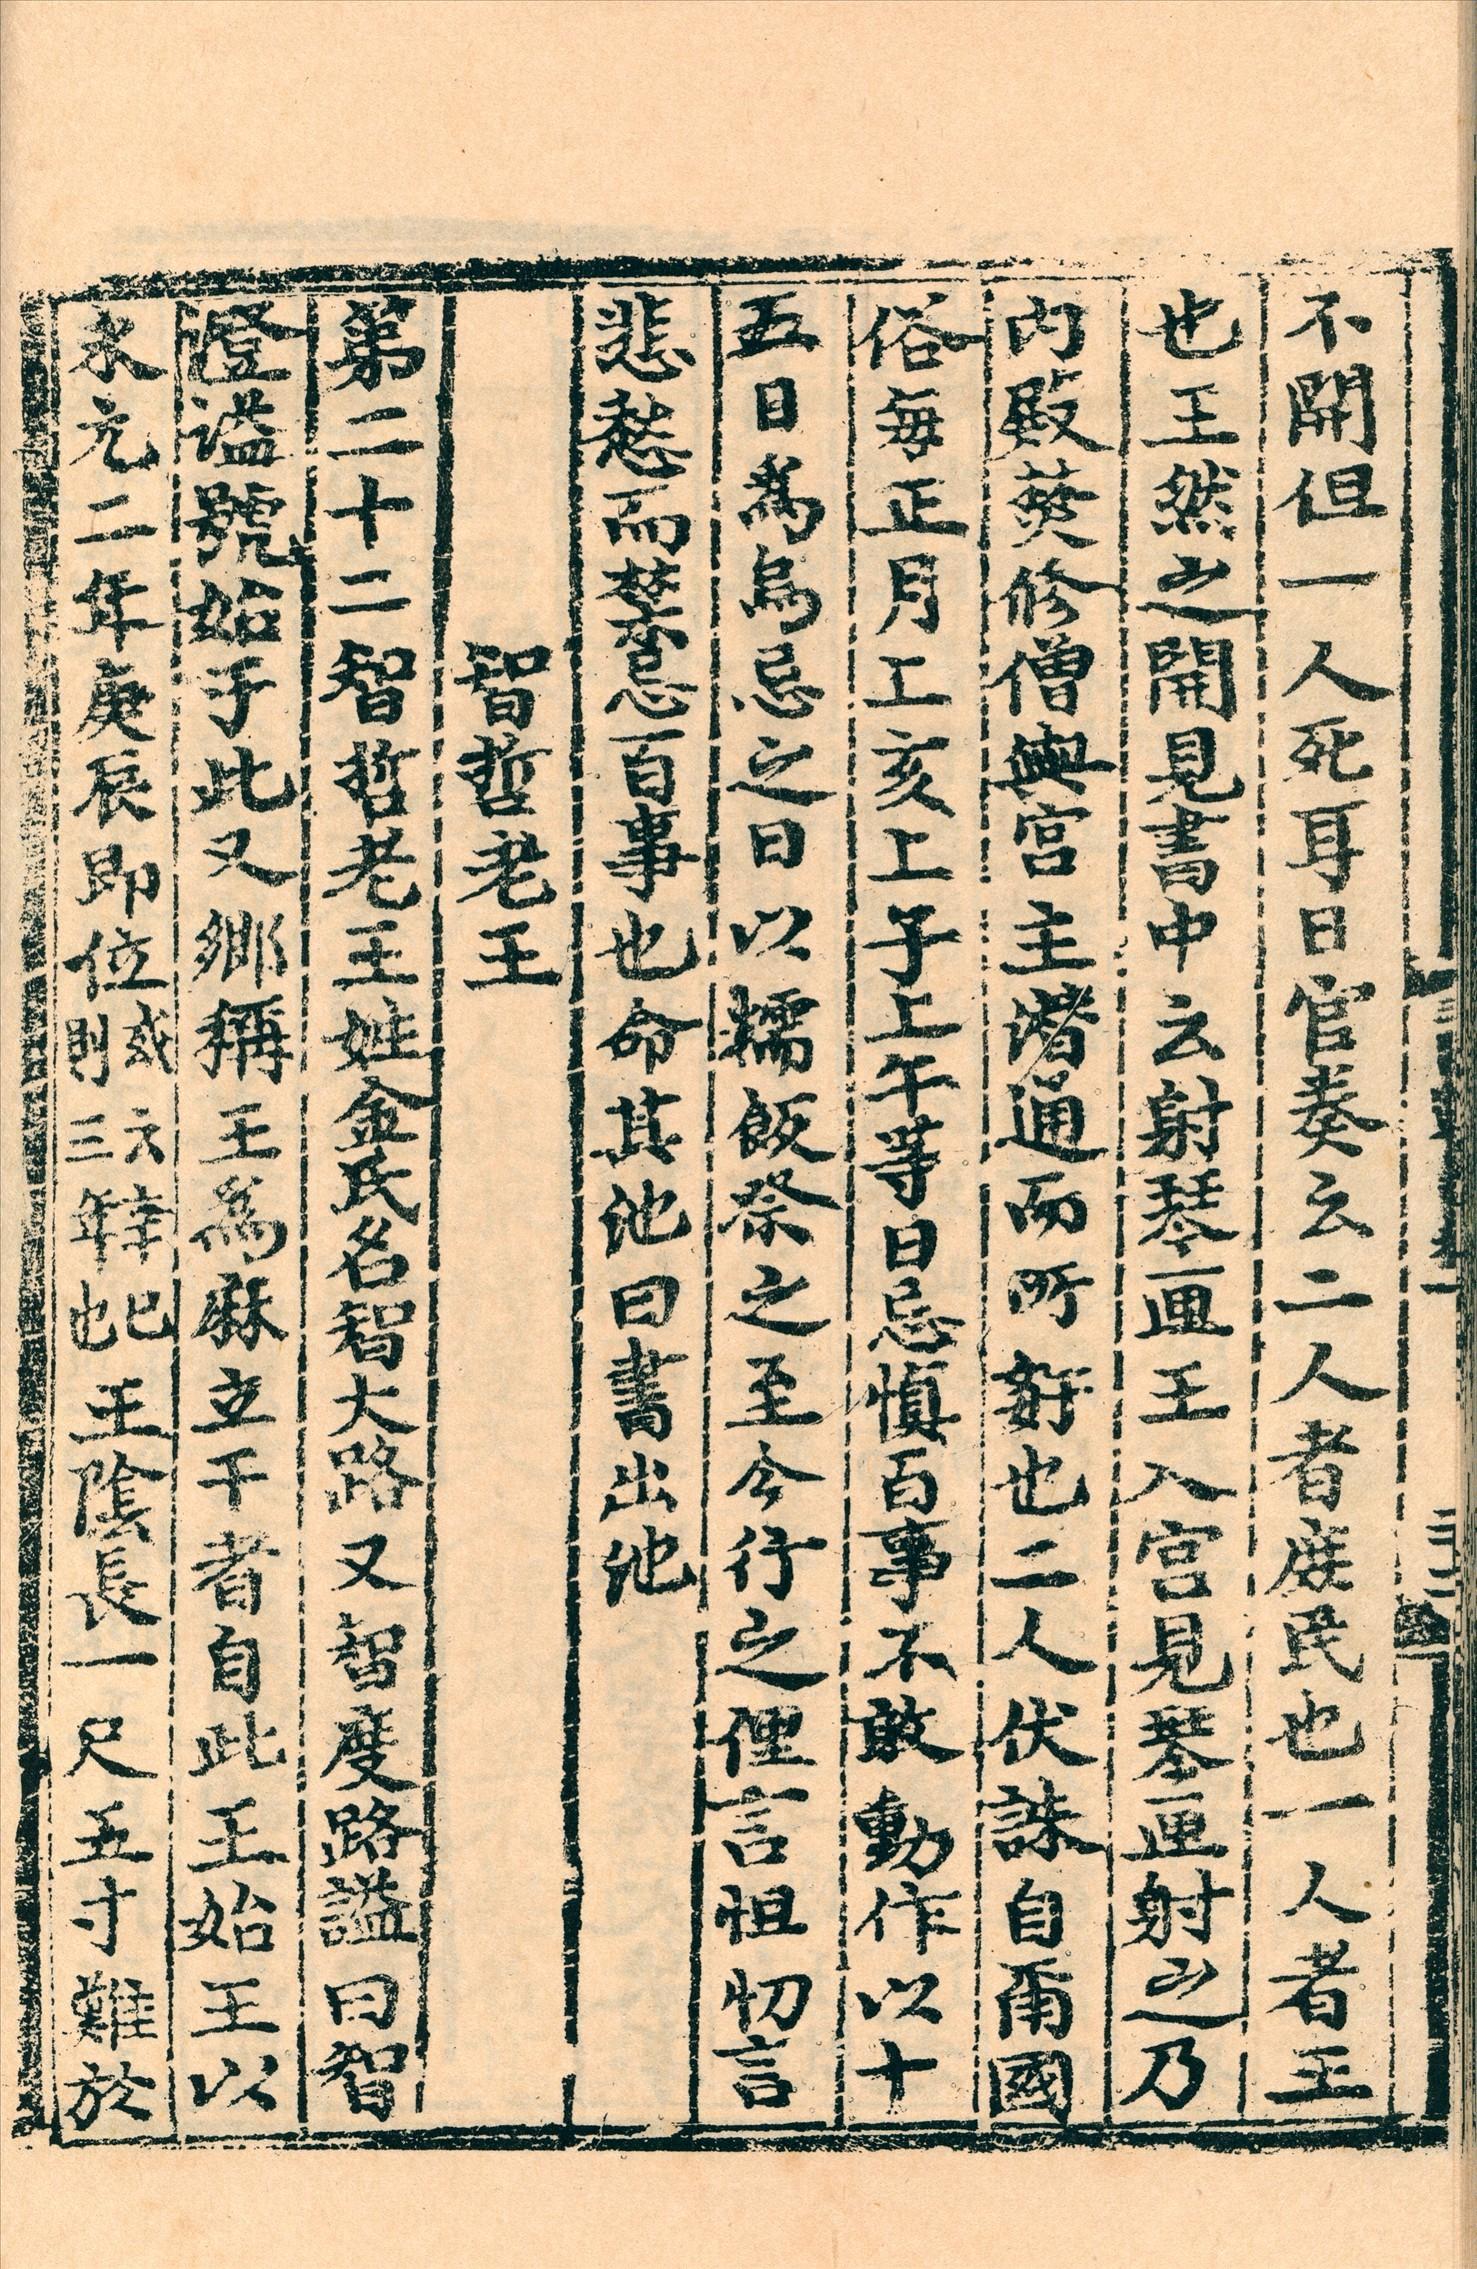 不開但一人死耳日官奏云二人者庶民也一人者王
也王然之開見書中云射琴匣王入宮見琴匣射之乃
內殿焚修僧與宮主潜通而所奸也二人伏誅自爾國
俗每正月上亥上子上午等日忌愼百事不敢動作以十
五日爲烏忌之日以糯飯祭之至今行之俚言怛忉言
悲愁而禁忌百事也命其池曰書出池
智哲老王
第二十二智哲老王姓金氏名智大路又智度路謚曰智
澄謚號始于此又鄉稱王爲麻立干者自此王始王以
永元二年庚辰即位或六辛巳則三年也王陰長一尺五寸難於